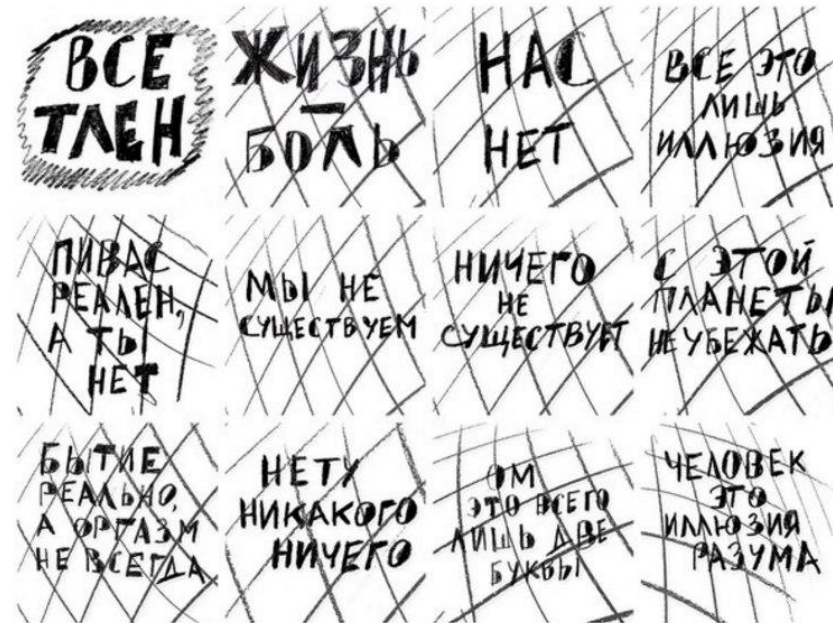 ВСЕ
ТЛЕН
ЖИЗНЬ
–
БОЛЬ
НАС
НЕТ
ВСЕ ЭТО
ЛИШЬ
ИЛЛЮЗИЯ
ПИВАС
РЕАЛЕН,
А ТЫ
НЕТ
МЫ НЕ
СУЩЕСТВУЕМ
НИЧЕГО
НЕ
СУЩЕСТВУЕТ
С ЭТОЙ
ПЛАНЕТЫ
НЕ УБЕЖАТЬ
БЫТИЕ
РЕАЛЬНО,
А ОРГАЗМ
НЕ ВСЕГДА
НЕТУ
НИКАКОГО
НИЧЕГО
ОМ
ЭТО ВСЕГО
ЛИШЬ ДВЕ
БУКВЫ
ЧЕЛОВЕК
ЭТО
ИЛЛЮЗИЯ
РАЗУМА